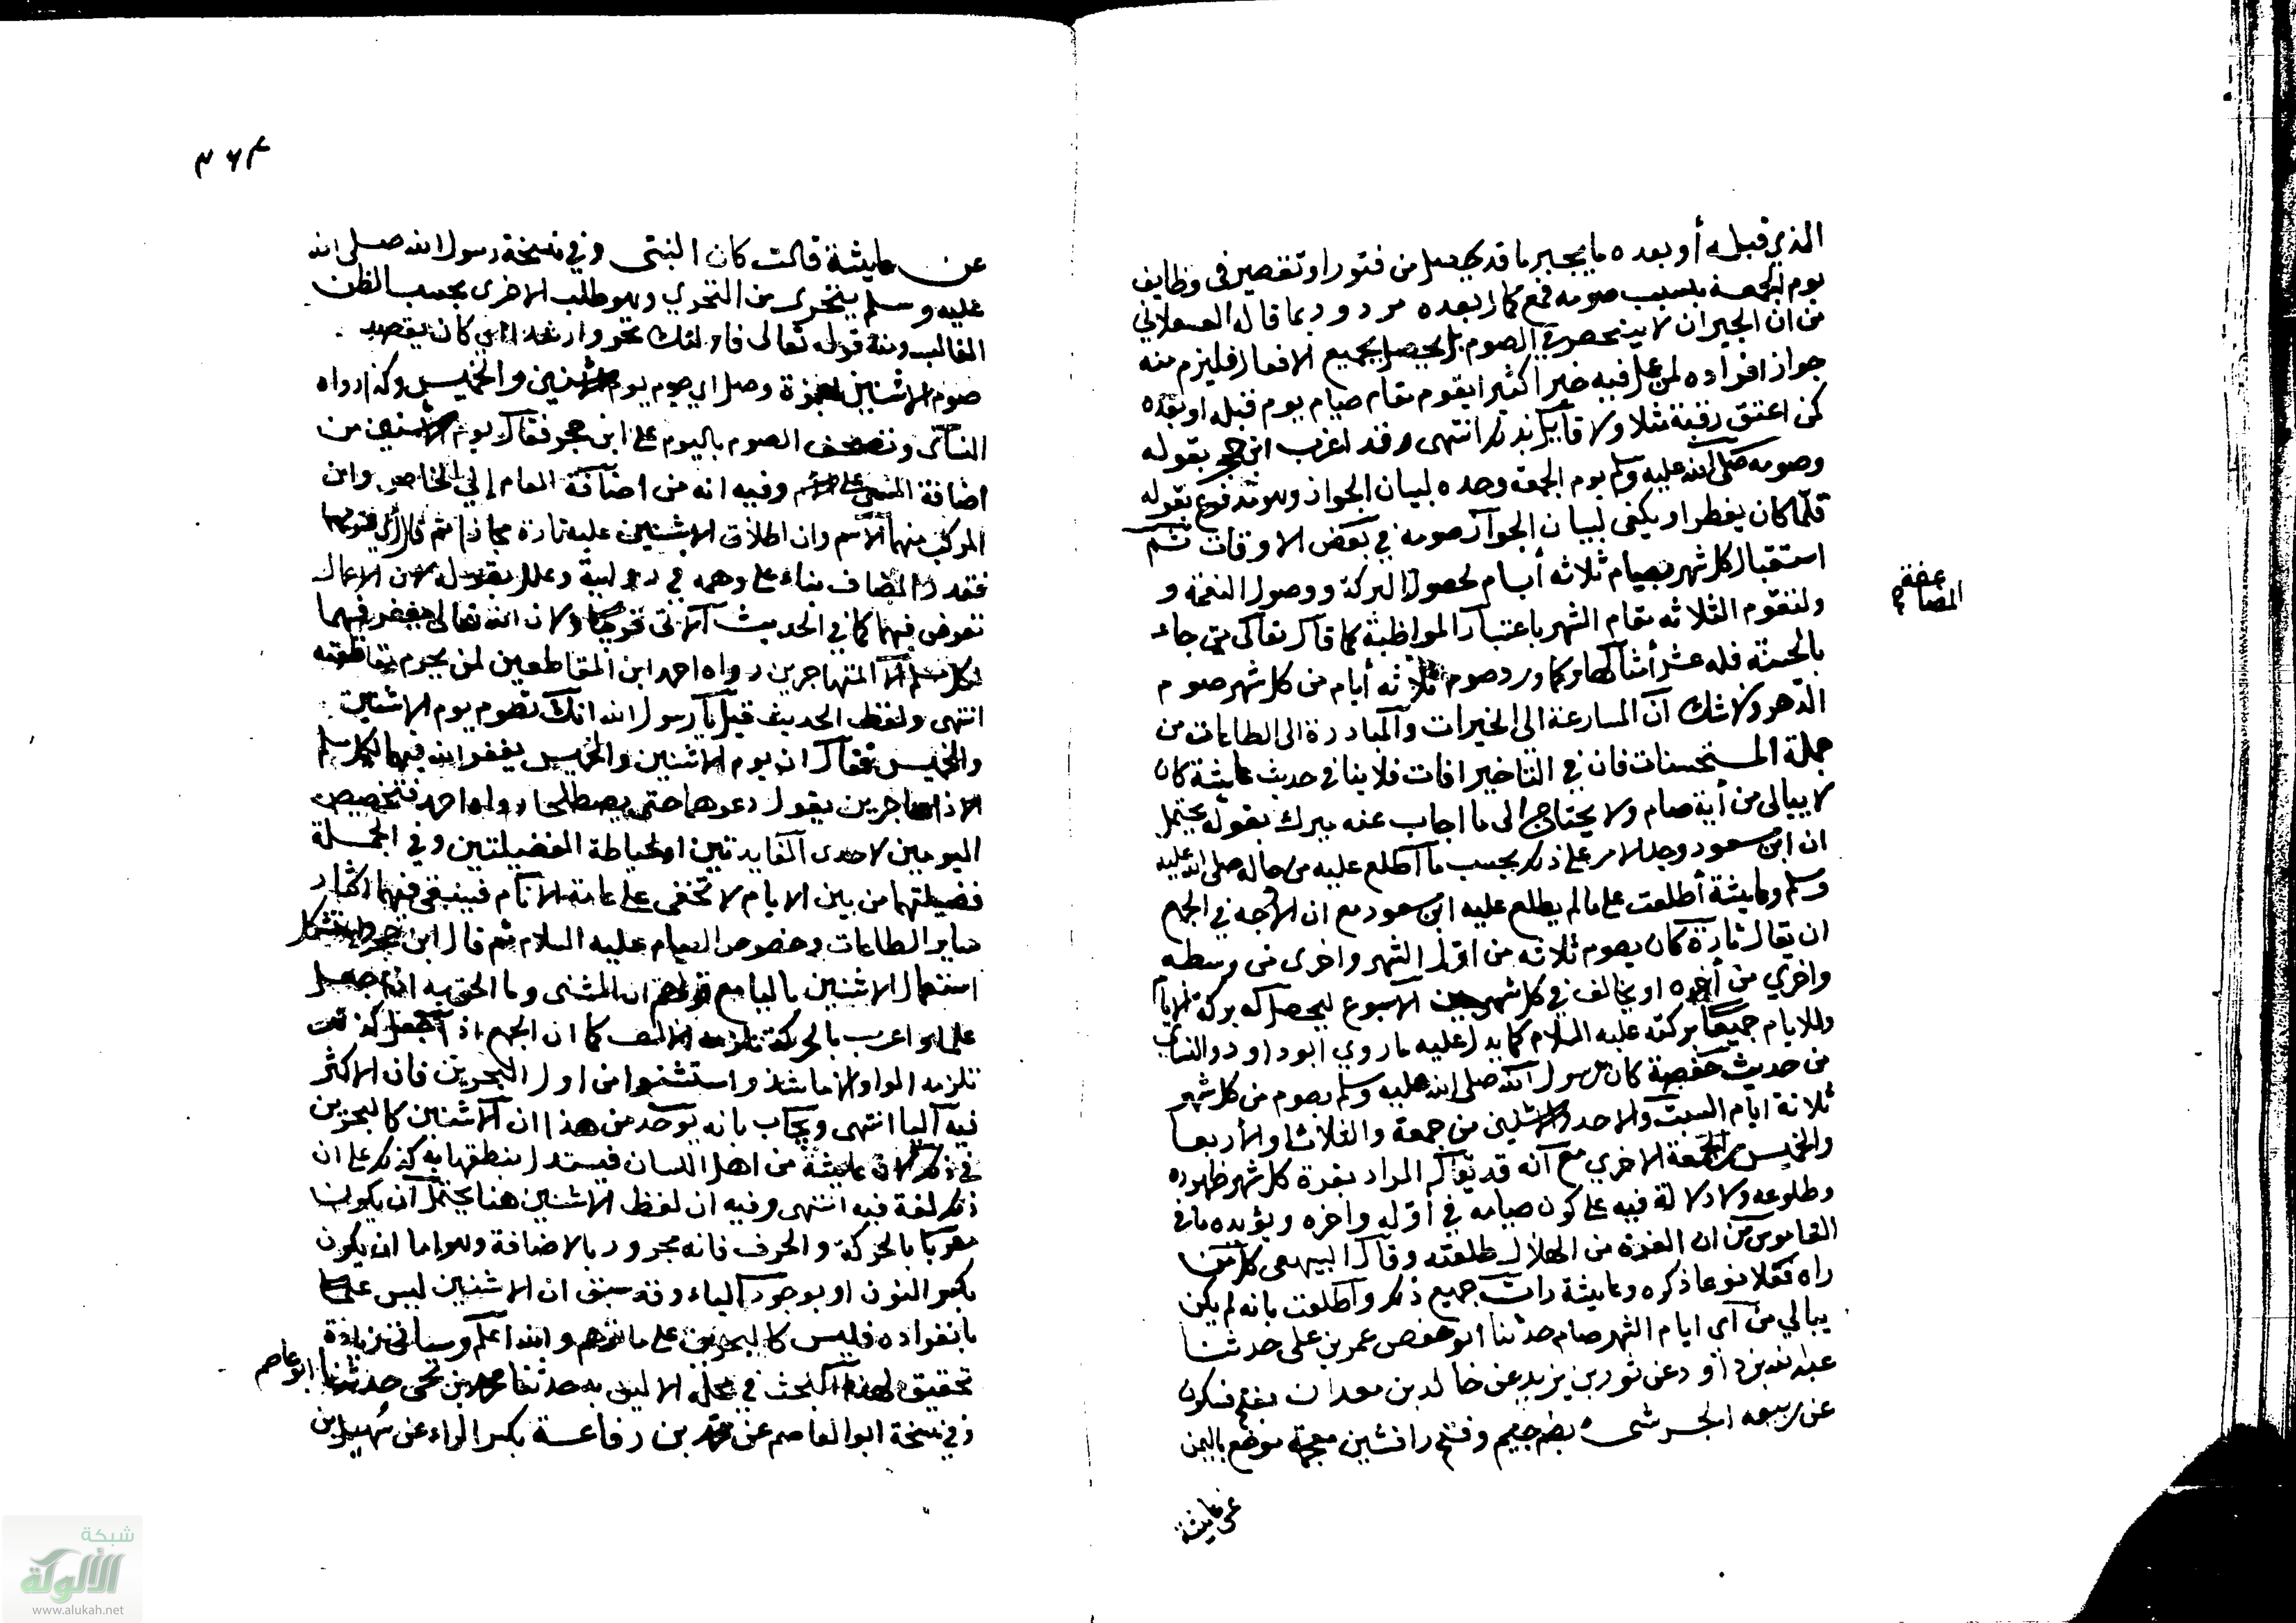 الذي قبله أو بعده ما يجبر ما قد يحصل من فتور او تقصير في وظايف
يوم الجمعة بسبب صومه فمع كمال بعده مردود بما قاله العسقلاني
من ان الجبران لا ينحصر في الصوم بل يحصل بجميع الافعال فيلزم منه
جواز افراده لمن عمل فيه خيرا كثيرا يقوم مقام صيام يوم قبله او بعده
كمن اعتق رقبة مثلا ولا قائل بذلك انتهى وقد اغرب ابن حجر بقوله
وصومه صلى الله عليه وسلم يوم الجمعة وحده لبيان الجواز وهو مدفوع بقوله
قلما كان يفطر او يكفى لبيان الجواز صومه في بعض الاوقات ثم
استقبال كل شهر بصيام ثلاثه أيام لحصول البركة ووصول النعمة و
ولتقوم الثلاثه مقام الشهر باعتبار المواظبة كما قال تعالى من جاء
بالحسنة فله عشر أمثالها وكما ورد صوم ثلاثه أيام من كل شهر صوم
الدهر ولا شك أن المسارعة الى الخيرات والمبادرة الى الطاعات من
جملة المستحسنات فان في التاخير افات فلا ينافي حديث عايشة كان
لا يبالى من أية صام ولا يحتاج الى ما اجاب عنه ميرك بقوله يحتمل
ان ابن مسعود وجد الامر على ذلك بحسب ما اطلع عليه من حاله صلى الله عليه
وسلم وعايشة أطلعت على ما لم يطلع عليه ابن مسعود مع ان الاوجه في الجمع
ان يقال تارة كان يصوم ثلاثه من اول الشهر واخرى من وسطه
واخري من أخره او يخالف في كل شهر بين الاسبوع ليحصل له بركة الايام
وللايام جميعا بركته عليه السلام كما يدل عليه ما روي ابو داود والنساي
من حديث حفصة كان رسول الله صلى الله عليه وسلم يصوم من كل شهر
ثلاثة ايام السبت والاحد والاثنين من جمعة والثلاثا والأربعا
والخميس من الجمعة الاخري مع أنه قد يقال المراد بغرة كل شهر ظهوره
وطلوعه ولا دلالة فيه على كون صيامه في أوله واخره ويؤيده ما في
القاموس من ان الغرة من الهلال طلعته وقال البيهقى كل من
راه فعلا نوعا ذكره وعايشة رات جميع ذلك وأطلقت بانه لم يكن
يبالي من أي ايام الشهر صام حدثنا ابو حفص عمر بن على حدثنا
عبد الله بن داود عن ثور بن يزيد عن خالد بن معدان بفتح فسكون
عن ربيعه الجرشى بضم جيم وفتح را فشين معجمة موضع باليمن
عن عايشة
المضاعفة
٣٦٤
عن عايشة قالت كان النبى وفي نسخة رسول الله صلى الله
عليه وسلم يتحرى من التحري وهو طلب الاخرى بحسب الظن
الغالب ومنه قوله تعالى فاولئك تحروا رشدا اي كان يقصد
صوم الاثنين بهمزة وصل اي صوم يوم الاثنين والخميس وكذا رواه
النسائى وتصحف الصوم باليوم على ابن حجر فقال يوم الاثنين من
اضافة المسمى وفيه انه من اضافة العام إلى الخاص وان
المركب منهما الاسم وان اطلاق الاثنين عليه تارة مجاز ثم قال أي صومهما
فقدر المضاف بناء على وهمه في وعلله بقوله لان الاعمال
تعرض فيهما كما في الحديث الآتى قريبا ولان الله تعالى يغفر فيهما
لكل مسلم الا المتهاجرين رواه احمد اي المقاطعين لمن يحرم مقاطعته
انتهى ولفظ الحديث قيل يا رسول الله انك تصوم يوم الاثنين
والخميس فقال ان يوم الاثنين والخميس يغفر الله فيهما لكل مسلم
الا ذا مهاجرين يقول دعوهما حتى يصطلحا رواه احمد فتخصيص
اليومين لاحدى الفايدتين او لحياطة الفضيلتين وفي الجملة
فضيلتهما من بين الايام لا تخفى على عامة الانام فينبغي فيهما اكثار
ساير الطاعات وخصوص الصيام عليه السلام ثم قال ابن حجر واستشكل
استعمال الاثنين باليا مع قولهم ان المثنى وما الحق به اذا جعل
علما واعرب بالحركة تلزمه الالف كما ان الجمع اذا جعل كذلك
تلزمه الواو الا ما شذ واستثنوا من اول البحرين فان الاكثر
فيه اليا انتهى ويجاب بانه يوخذ من هذا ان الاثنين كالبحرين
في ذلك لان عايشة من اهل اللسان فيستدل بنطقها به كذلك على ان
ذلك لغة فيه انتهى وفيه ان لفظ الاثنين هنا يحتمل أن يكون
معربا بالحركة والحرف فانه مجرور بالاضافة وهو اما ان يكون
بكسر النون او بوجود الياء وقد سبق ان الاثنين ليس علما
بانفراده فليس كالبحرين على ما توهم والله اعلم وسياتى زيادة
تحقيق لهذا البحث في محله الاليق به حدثنا محمد بن يحيى حدثنا ابو عاصم
وفي نسخة ابو العاصم عن محمد بن رفاعة بكسر الراء عن سهيل بن
شبكة
الألوكة
www.alukah.net